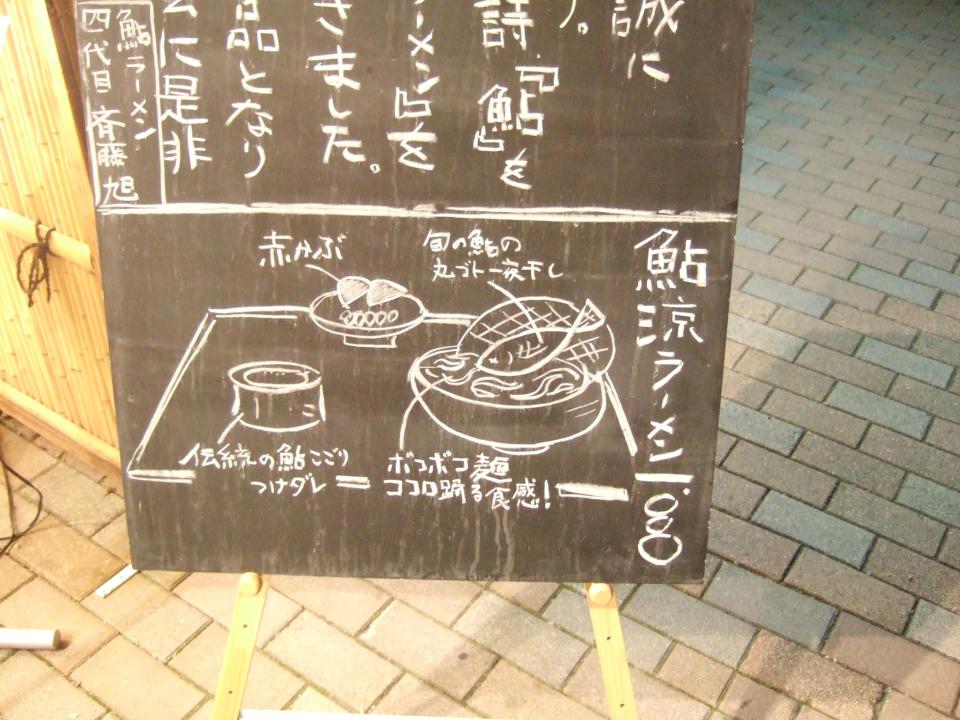 誠に
。
詩『鮎』を
ーメン』を
さました。
品となり
に是非
鮎ラーメン
四代目 斉藤旭
鮎涼ラーメン
赤かぶ
旬の鮎の
丸ゴト一夜干し
伝統の鮎こごり
つけダレ
ボコボコ麺
ココロ踊る食感!